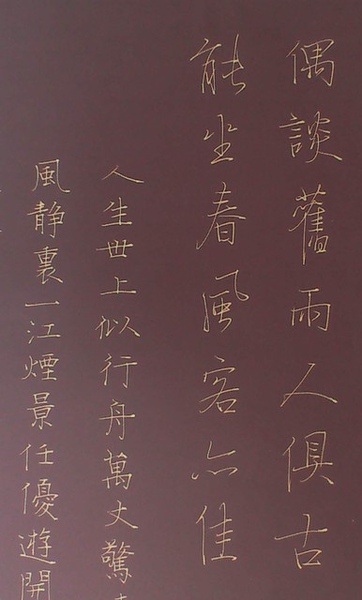 偶談舊雨人俱古
能坐春風客亦佳
人生世上似行舟萬丈驚
風静裏一江煙景任優遊開